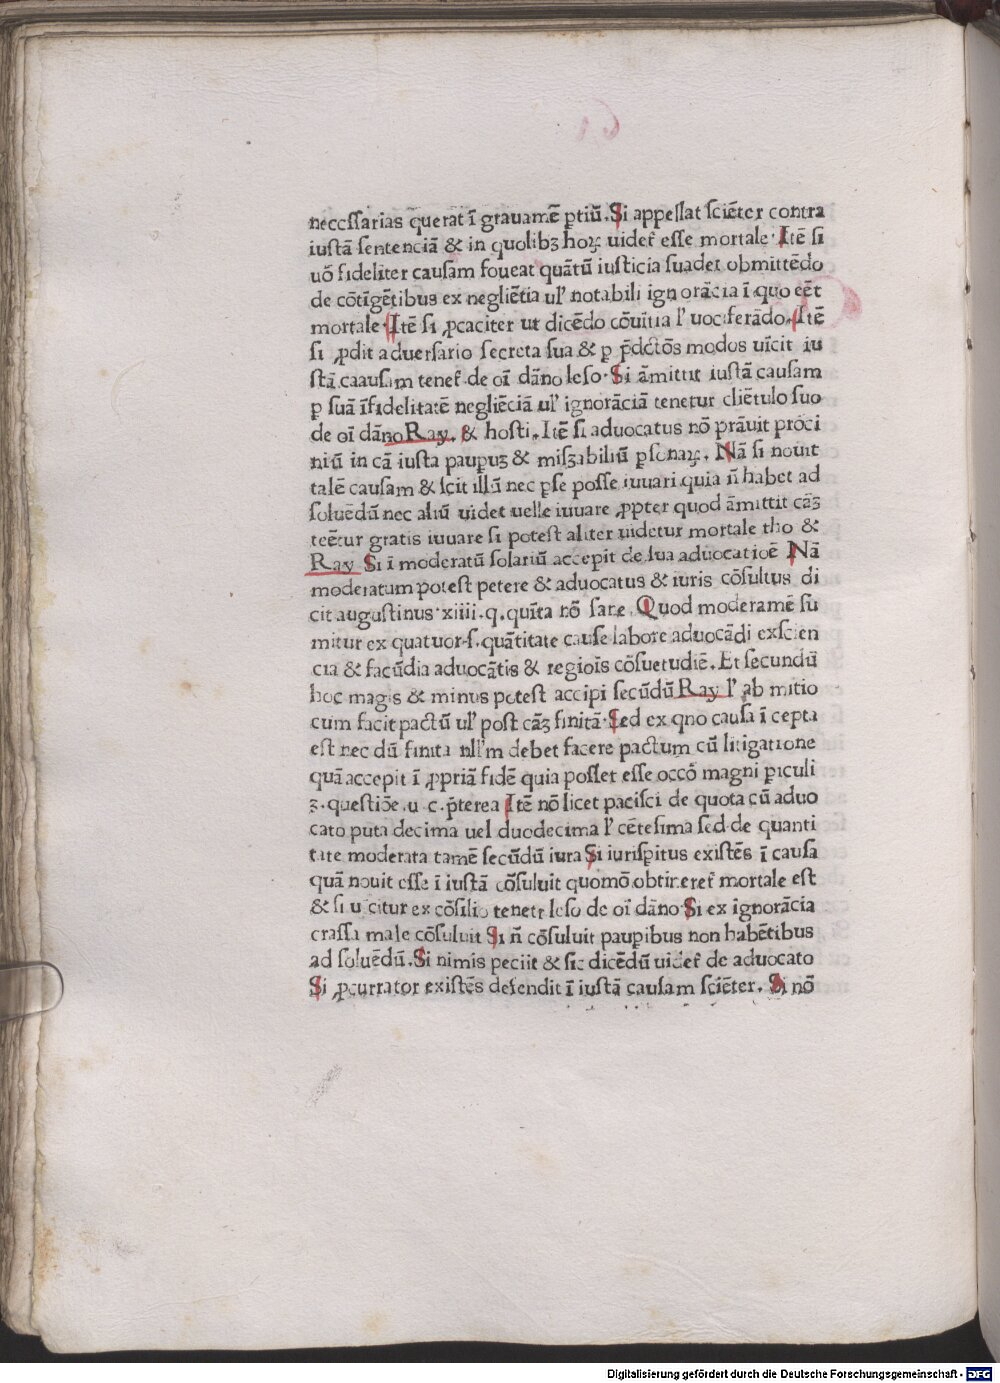 necessarias querat ī grauamē ꝑtiū. Si appellat sciēter contra
iustā sentenciā & in quolibꝫ hoꝝ uidet᷑ esse mortale· Itē si
uō fideliter causam foueat quātū iusticia suadet obmittēdo
de cōtīgētibus ex negliētia ul' notabili ignorācia ī quo eēt
mortale· Itē si ꝓcaciter ut dicēdo cōuitia l' uociferādo. Itē
si ꝓdit aduersario secreta sua & ꝑ p̄dctōs modos uīcit iu
stā caausam tenet᷑ de oī dāno leso· Si āmittit iustā causam
ꝑ suā īfidelitatē negliēciā ul' ignorāciā tenetur cliētulo suo
de oī dāno Ray. & hosti. Itē si aduocatus nō prāuit proci
niū in cā iusta pauꝑuꝫ & misꝫabiliū ꝑsonaꝝ. Nā si nouit
talē causam & scit illū nec ꝑse posse iuuari quia n̄ habet ad
soluēdū nec aliū uidet uelle iuuare ꝓpter quod āmittit cāꝫ
teētur gratis iuuare si potest aliter uidetur mortale tho &
Ray Si ī moderatū solariū accepit de sua aduocatiōē Nā
moderatum potest petere & aduocatus & iuris cōsultus di
cit augustinus·xiiii.q.quīta nō sane. Quod moderamē su
mitur ex quatuor·s.quātitate cause labore aduocādi exscien
cia & facūdia aduocātis & regiois cōsuetudiē. Et secundū
hoc magis & minus potest accipi secūdū Ray l' ab initio
cum facit pactū ul' post cāꝫ finitā· Sed ex qno causa ī cepta
est nec dū finita nll'm debet facere pactum cū litigatione
quā accepit ī ꝓpriā fidē quia posset esse occō magni ꝑiculi
ꝫ.questiōe.u c.p̄terea Itē nō licet pacisci de quota cū aduo
cato puta decima uel duodecima l' cētesima sed de quanti
tate moderata tamē secūdū iura Si iurisꝑitus existēs ī causa
quā nouit esse ī iustā cōsuluit quomō obtineret᷑ mortale est
& si uīcitur ex cōsilio tenetr leso de oī dāno· Si ex ignorācia
crassa male cōsuluit Si n̄ cōsuluit pauꝑibus non habētibus
ad soluēdū. Si nimis peciit & sic dicēdū uidet᷑ de aduocato
Si ꝓcurrator existēs defendit ī iustā causam sciēter. Si nō
Digitalisierung gefördert durch die Deutsche Forschungsgemeinschaft - DFG